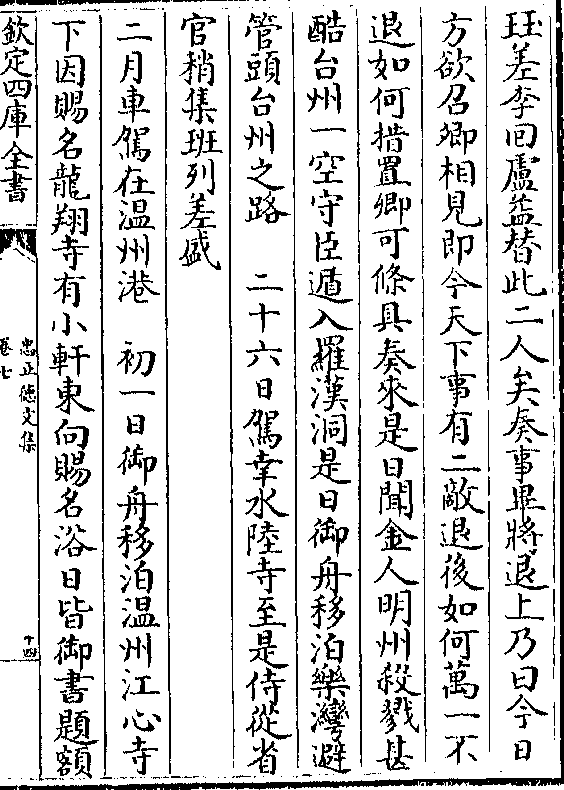 珏差李回盧益替此二人矣奏事畢將退上乃曰今日
方欲召卿相見即今天下事有二敵退後如何萬一不
退如何措置卿可條具奏來是日聞金人明州殺戮甚
酷台州一空守臣遁入羅漢洞是日御舟移泊樂灣避
管頭台州之路　二十六日駕幸水陸寺至是侍從省
官稍集班列差盛
二月車駕在温州港　初一日御舟移泊温州江心寺
下因賜名龍翔寺有小軒東向賜名浴日皆御書題額
欽定四庫全書
忠正德文集
卷七
十四